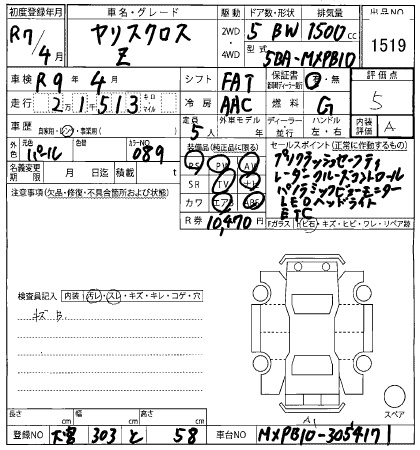 初度登録年月 車名・グレード 駆動 ドア数・形状 排気量 出品NO
R7/4月 ヤリスクロス Z 2WD・4WD 5 BW 1500cc 1519
型式 5BA-MXPB10
車検 R9年4月 シフト FAT 保証書 新車時ディーラー発行 有・無 評価点
走行 2万1513 キロ・マイル 冷房 AAC 燃料 G 5
車歴 自家用・レン・事業用( ) 定員 5人 外車モデル 年 ディーラー・並行 ハンドル 左・右 内装評価 A
外色 元色 パール 色替 カラーNO 089 装備品(純正品に限る) セールスポイント(正常に作動するもの)
名義変更期限 月 日迄 積載 t PS PW AW
注意事項(欠品・修復・不具合箇所および状態) SR TV ナビ
カワ エアB ABS
R券 10,470円
プリクラッシュセーフティ
レーダークルーズコントロール
パノラミックビューモニター
LEDヘッドライト
ETC
Fガラス 飛石・キズ・ヒビ・ワレ・リペア跡
検査員記入 内装 汚レ・スレ・キズ・キレ・コゲ・穴
A1
スペア
長さ cm 幅 cm 高さ cm
登録NO 大宮 303 と 58 車台NO MXPB10-3054171